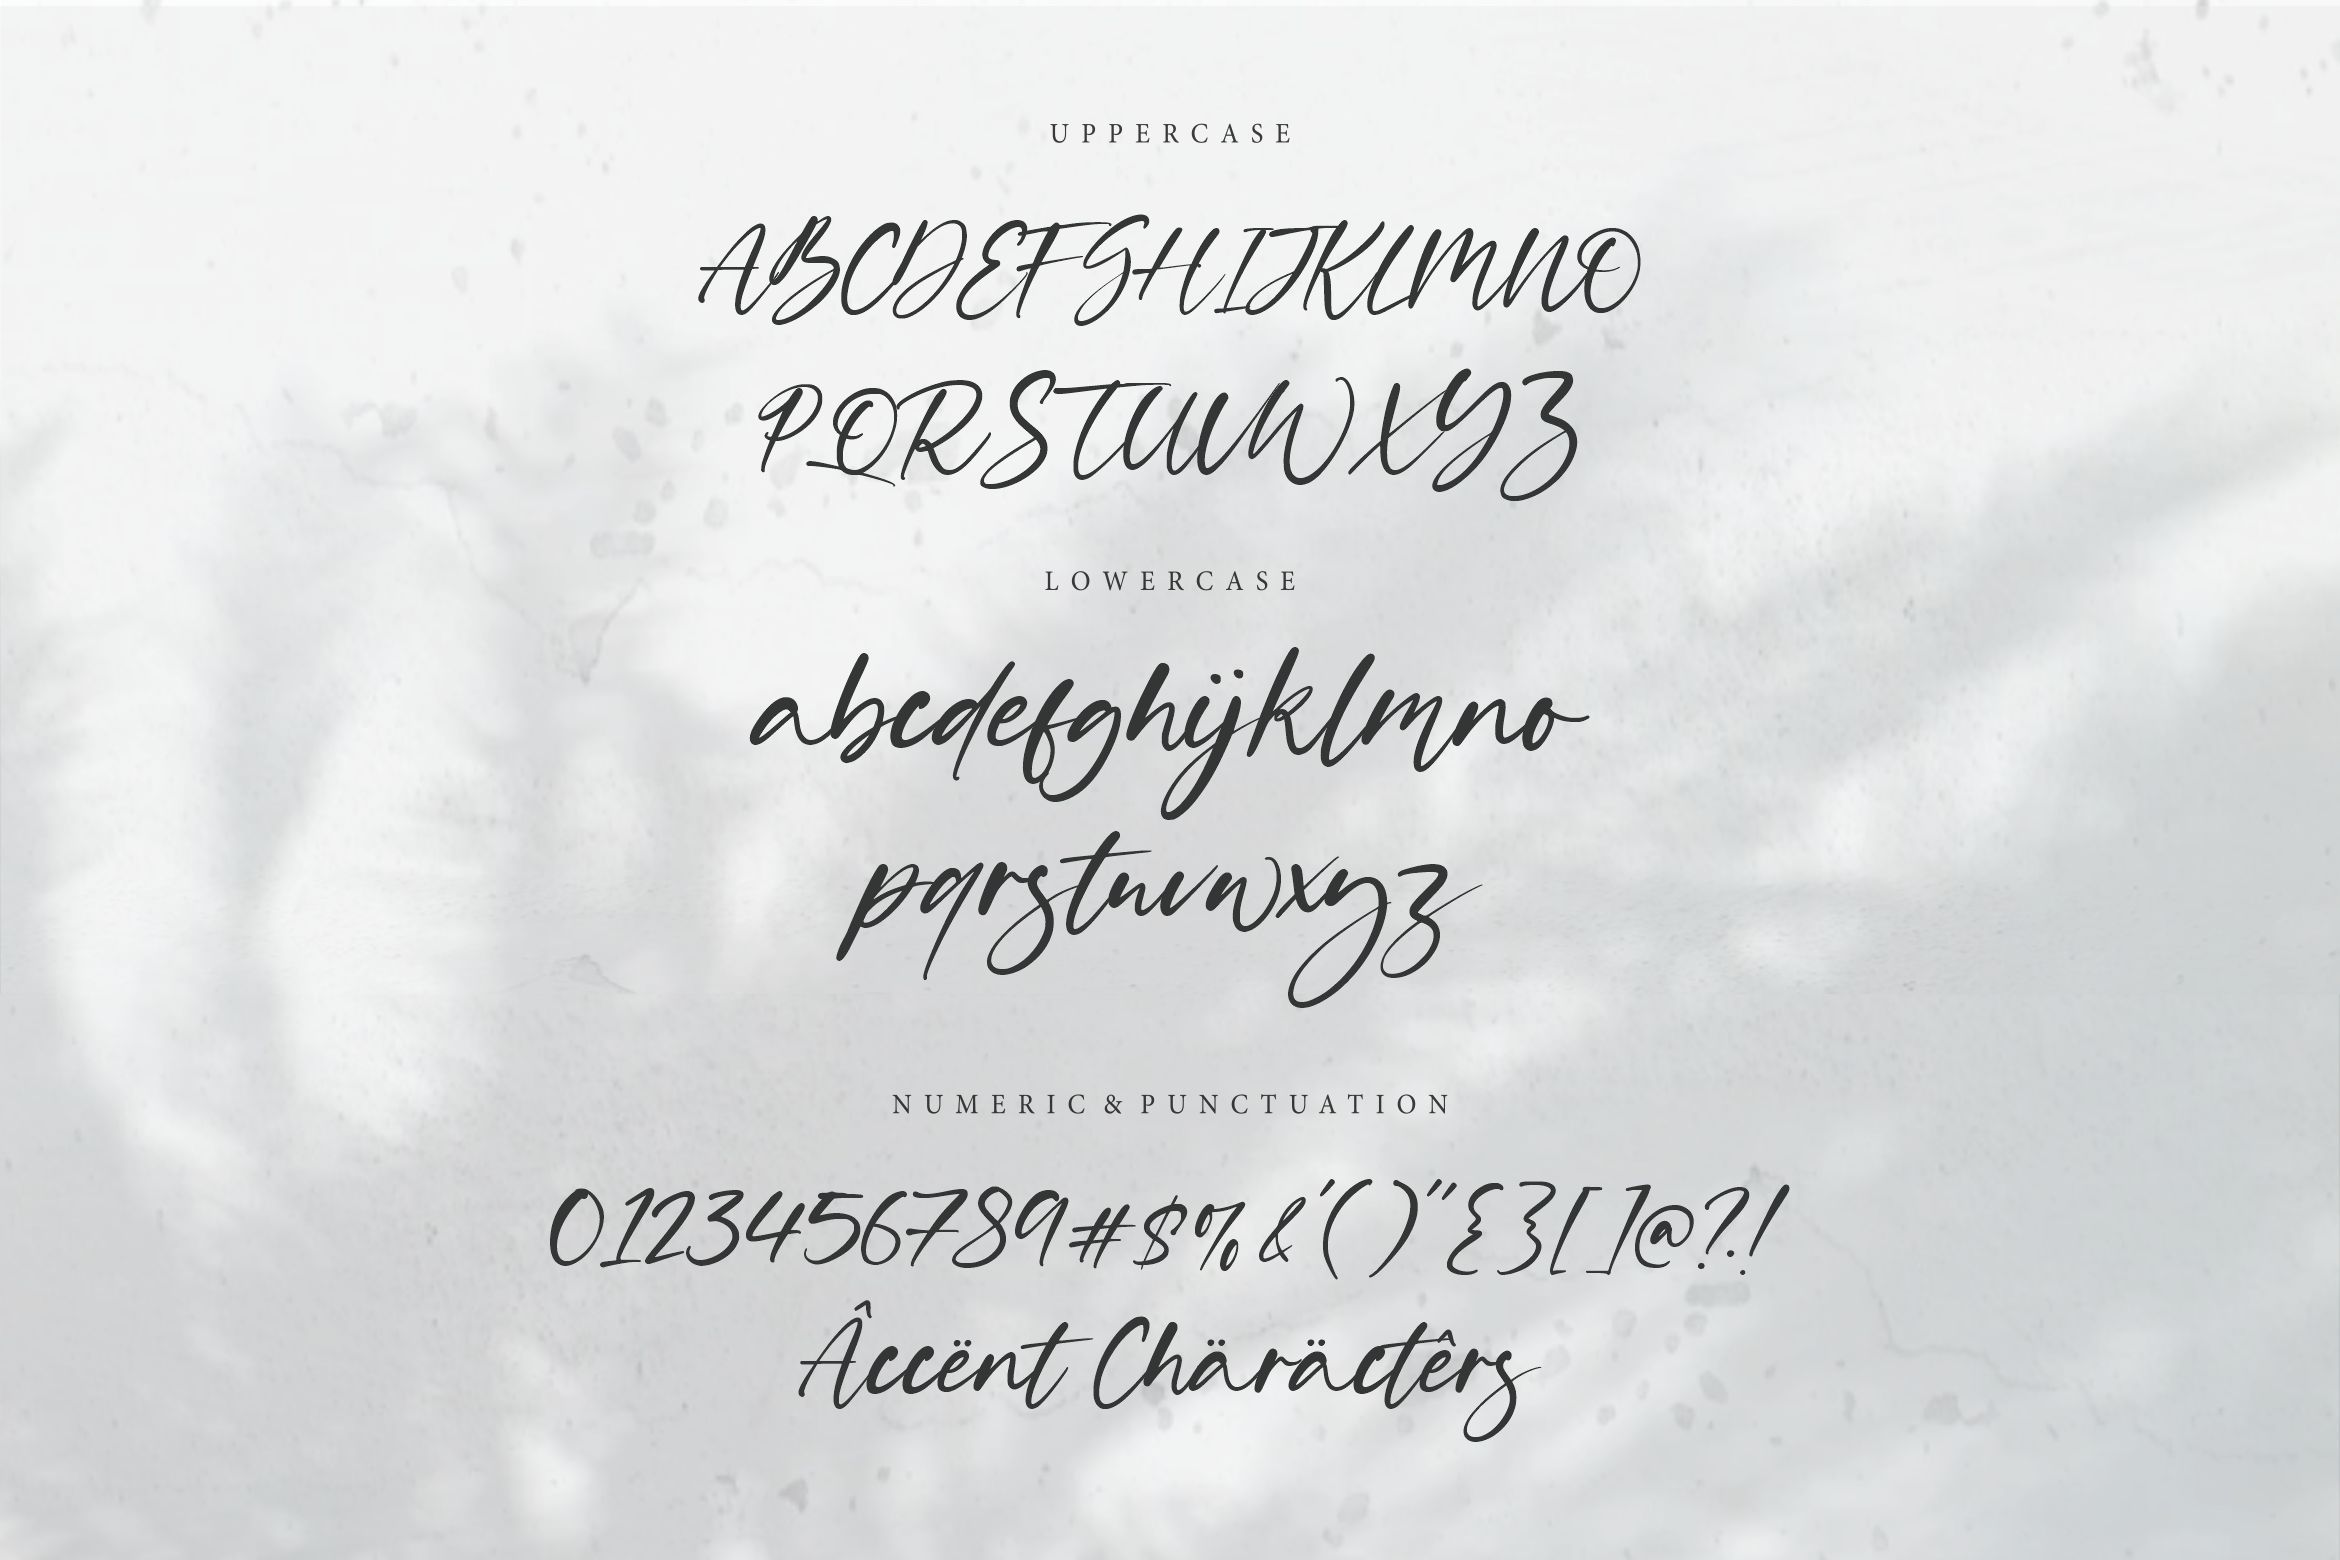 UPPERCASE
ABCDEFGHIJKLMNO
PQRSTUVWXYZ
LOWERCASE
abcdefghijklmno
pqrstuvwxyz
NUMERIC & PUNCTUATION
0123456789#$%&'()"{}[]@?!
Âccënt Chäräctêrs